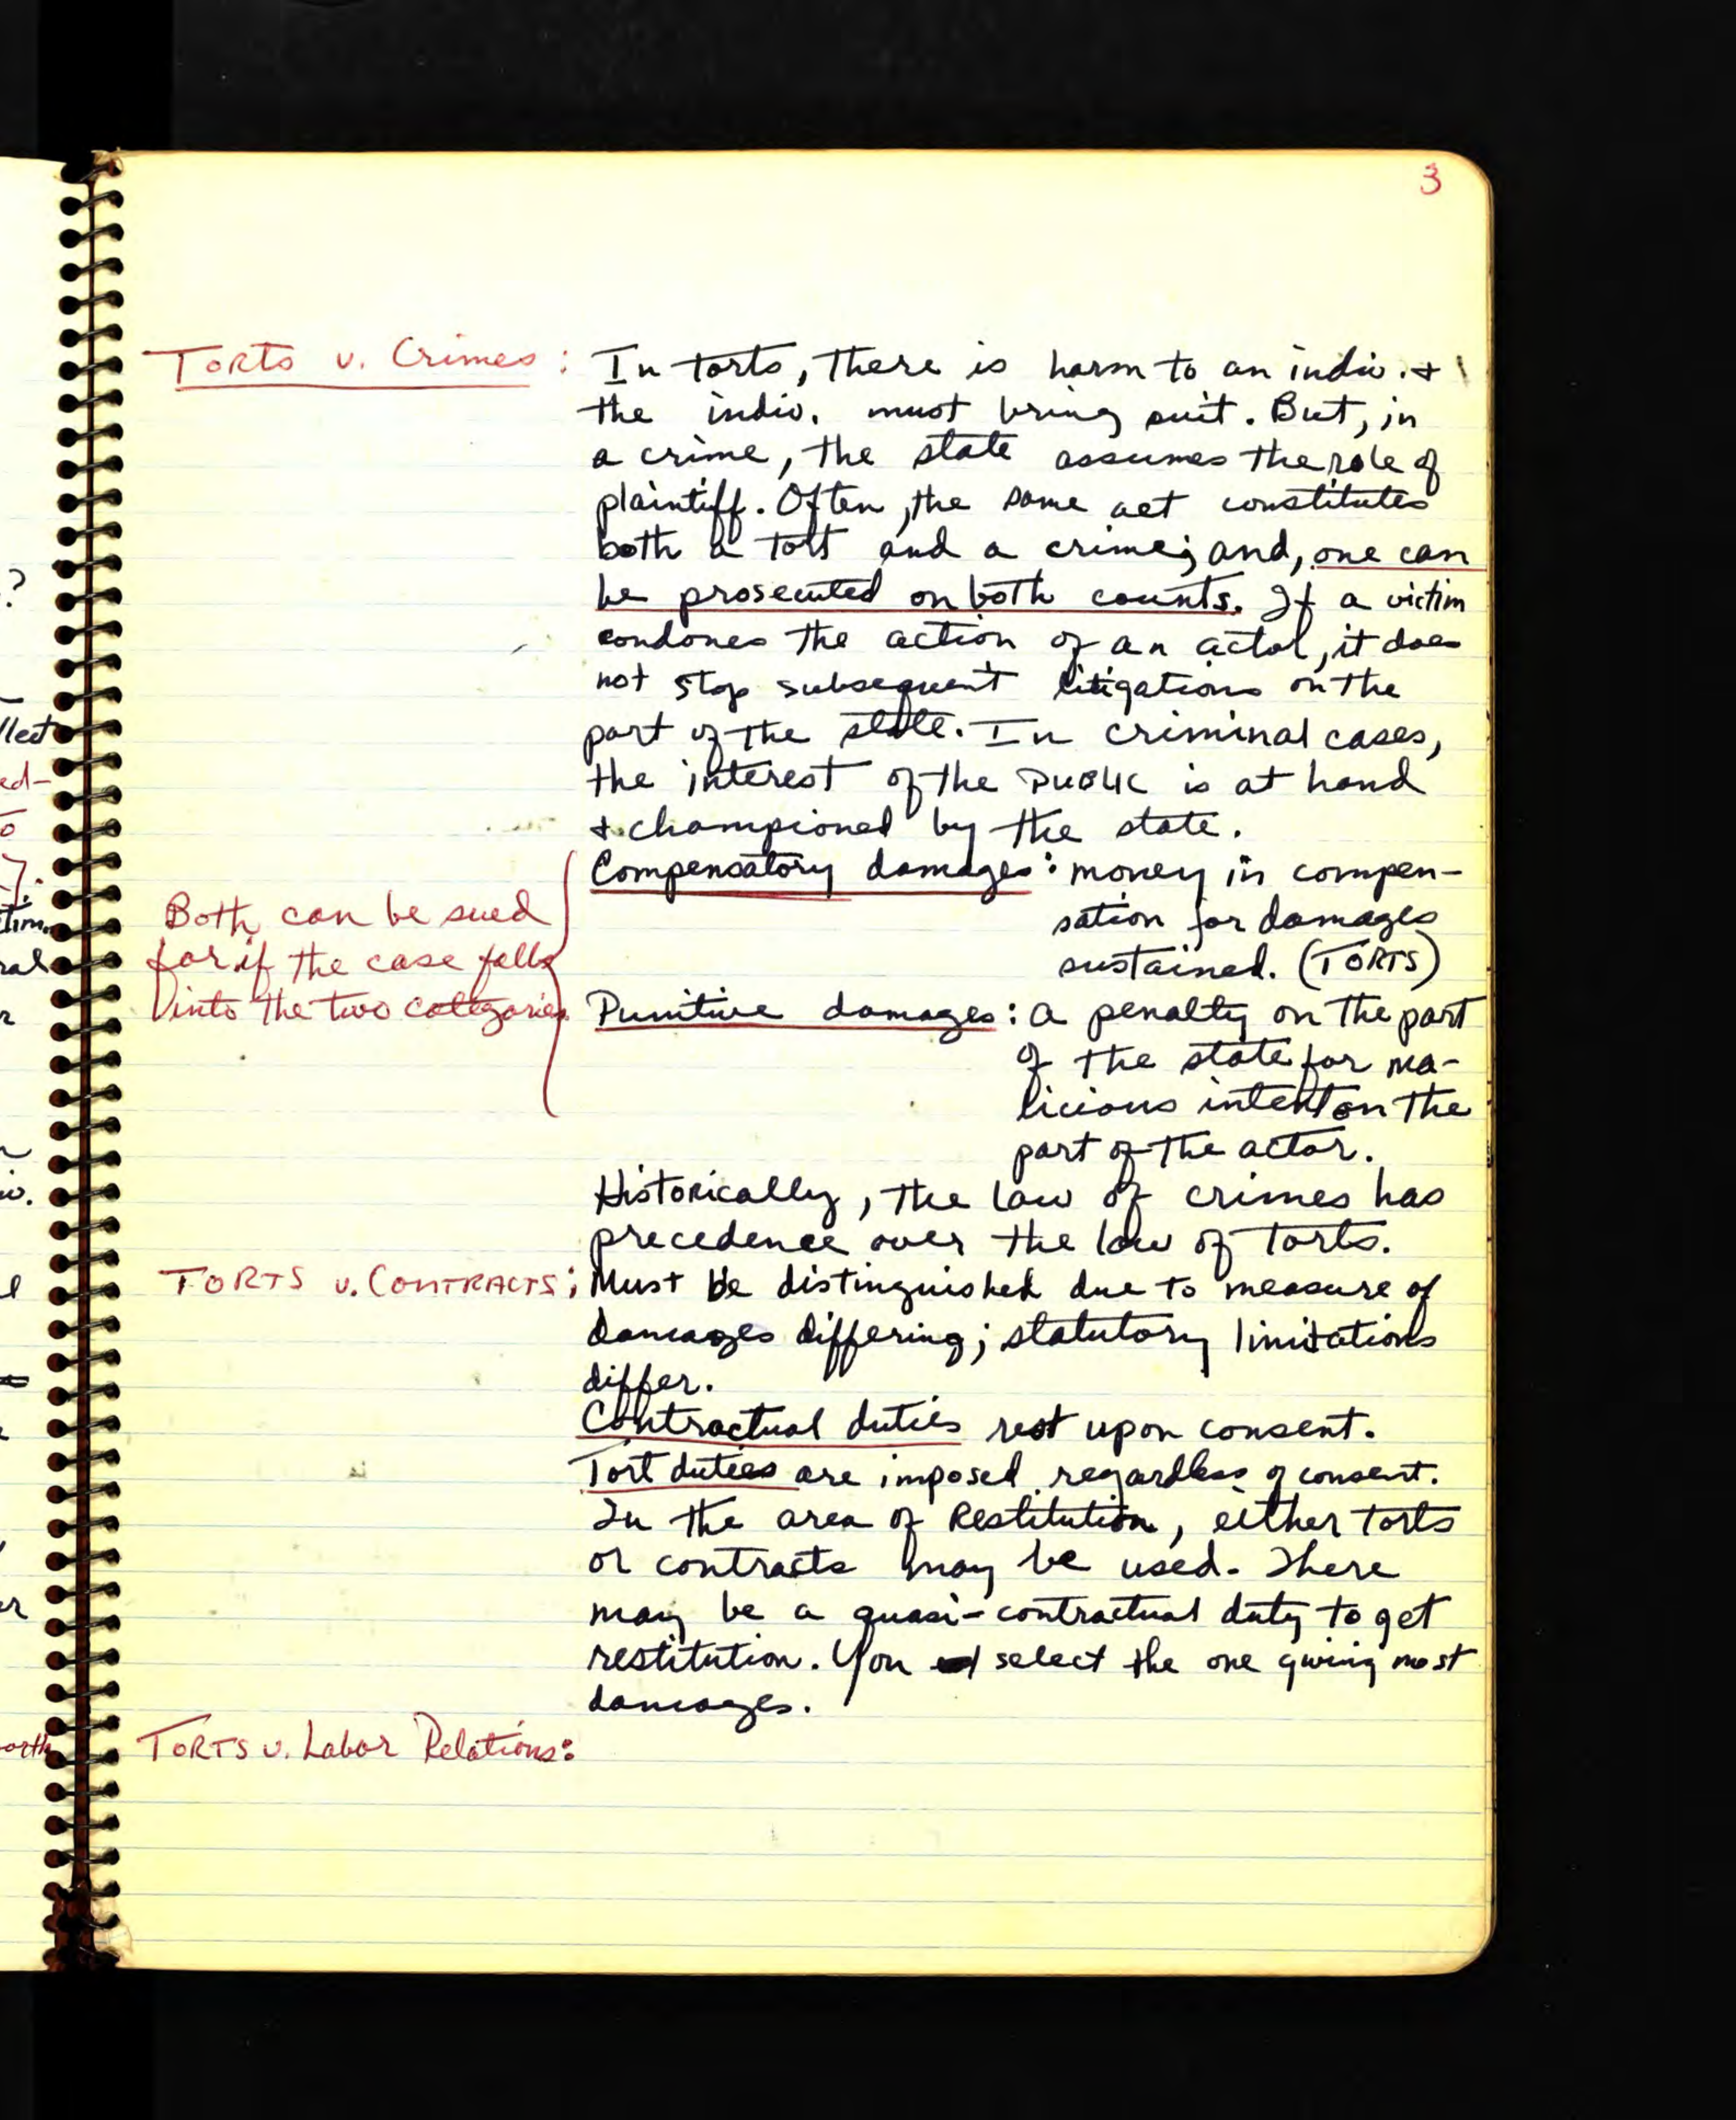 3
Torts v. Crimes: In torts, there is harm to an indiv. +
the indiv. must bring suit. But, in
a crime, the state assumes the role of
plaintiff. Often, the same act constitutes
both a tort and a crime; and, one can
be prosecuted on both counts. If a victim
condones the action of an actor, it does
not stop subsequent litigations on the
part of the state. In criminal cases,
the interest of the PUBLIC is at hand
+ championed by the state.
Compensatory damages: money in compen-
sation for damages
sustained. (TORTS)
Both can be sued
for if the case falls
into the two categories.
Punitive damages: a penalty on the part
of the state for ma-
licious intent on the
part of the actor.
Historically, the law of crimes has
precedence over the law of torts.
TORTS v. CONTRACTS: Must be distinguished due to measure of
damages differing; statutory limitations
differ.
Contractual duties rest upon consent.
Tort duties are imposed regardless of consent.
In the area of Restitution, either torts
or contracts may be used. There
may be a quasi-contractual duty to get
restitution. You select the one giving most
damages.
TORTS v. Labor Relations: